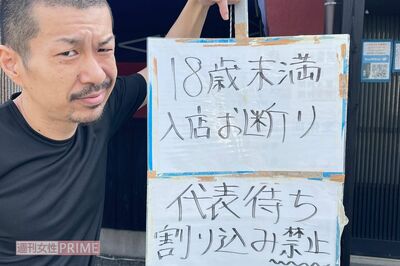 18歳末満
入店お断り
代表待ち
割り込み禁止
週刊女性PRIME